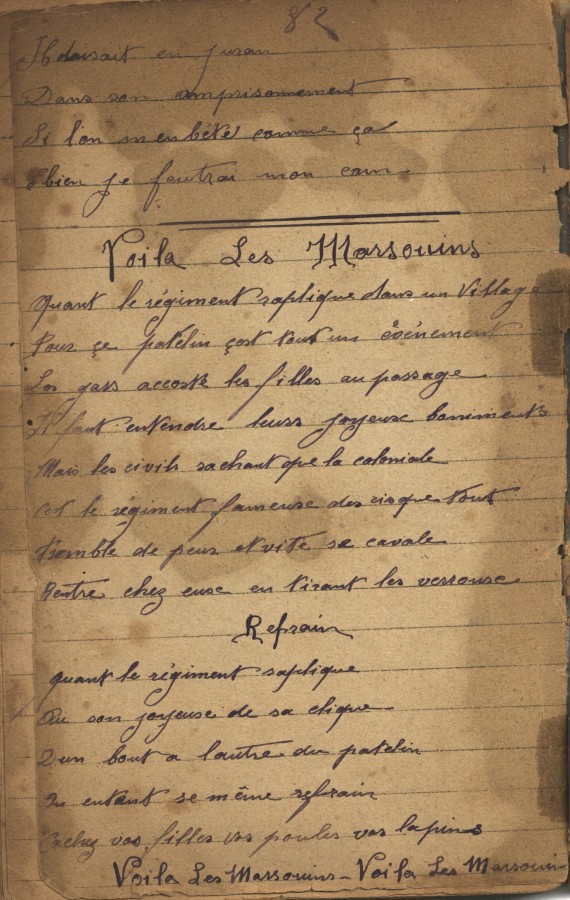 82
Il disait en juran
Dans son emprisonnement
Si l'on m'enbête comme ça
obien je foutrai mon cam
Voila Les Marsouins
Quant le régiment raplique dans un Village
Pour çe patelin çest tout un événement
Les gars accoste les filles au passage
Il faut entendre leurs joyeuse boniments
Mais les civils sachant que la coloniale
cest le régiment fameuse des risque tout
Tremble de peur et vite se cavale
Rentre chez euse en tirant les verrouse
Refrain
quant le régiment raplique
Au son joyeuse de sa clique
D'un bout a lautre du patelin
On entent se même refrain
Cachez vos filles vos poules vos lapins
Voila Les Marsouins - Voila Les Marsouin